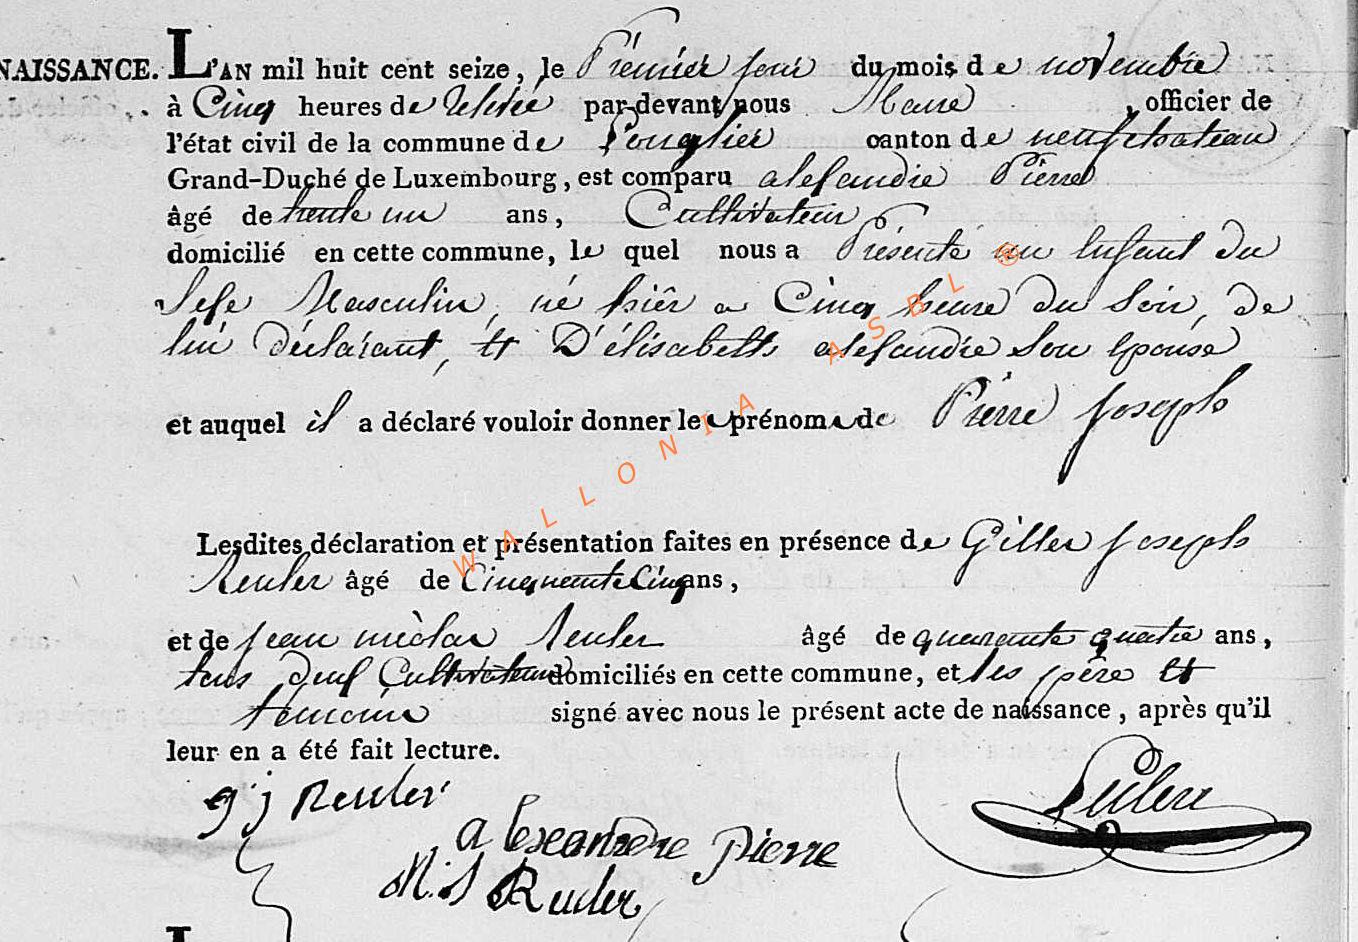 NAISSANCE. L'AN mil huit cent seize, le Premier jour du mois de novembre
à Cinq heures de relevée par-devant nous Maire, officier de
l'état civil de la commune de Longlier canton de neufchateau
Grand-Duché de Luxembourg, est comparu alexandre Pierre
âgé de trente un ans, Cultivateur
domicilié en cette commune, le quel nous a Présenté un Enfant du
Sexe Masculin, né hièr a Cinq heure du Soir, de
lui déclarant, et D'élisabeth alexandre Son épouse
et auquel il a déclaré vouloir donner les prénoms de Pierre Joseph
WALLONIA ASBL ®
Lesdites déclaration et présentation faites en présence de Gilles Joseph
Reuler âgé de Cinquante Cinq ans,
et de Jean nicolas Reuler âgé de quarante quatre ans,
tous deux Cultivateurs domiciliés en cette commune, et les père et
temoins signé avec nous le présent acte de naissance, après qu'il
leur en a été fait lecture.
g j Reuler
alexandre pierre